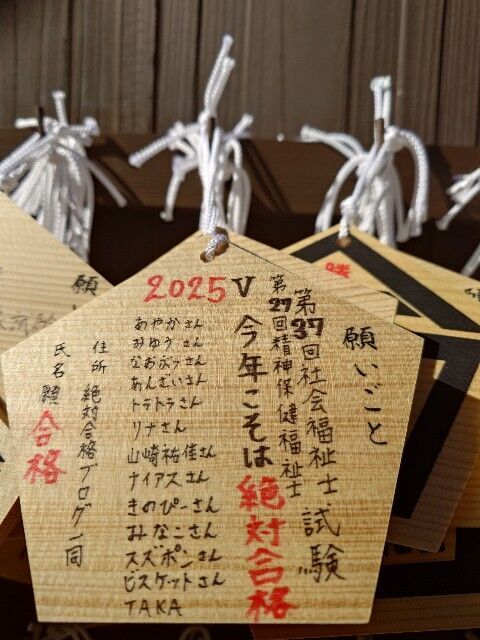 願いごと
第37回社会福祉士 試験
第27回精神保健福祉士
2025 V
今年こそは絶対合格
あやかさん
みゅうさん
なおぷぅさん
あんせいさん
トラトラさん
リナさん
山崎祐佳さん
ナイアスさん
きのぴーさん
みなこさん
スズポンさん
ビスケットさん
TAKA
住所 絶対合格ブログ一同
氏名 願 合格
願